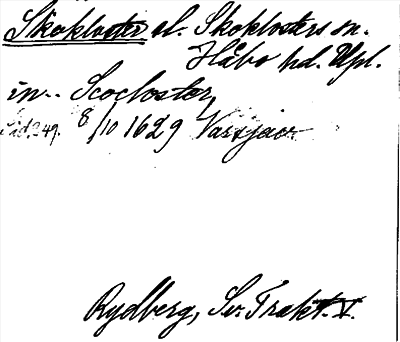 Skokloster el. Skoklosters sn.
Håbo hd. Upl.
in.. Scocloster,
Sid. 249. 8/10 1629
Rydberg, Sv. Trakt. V.